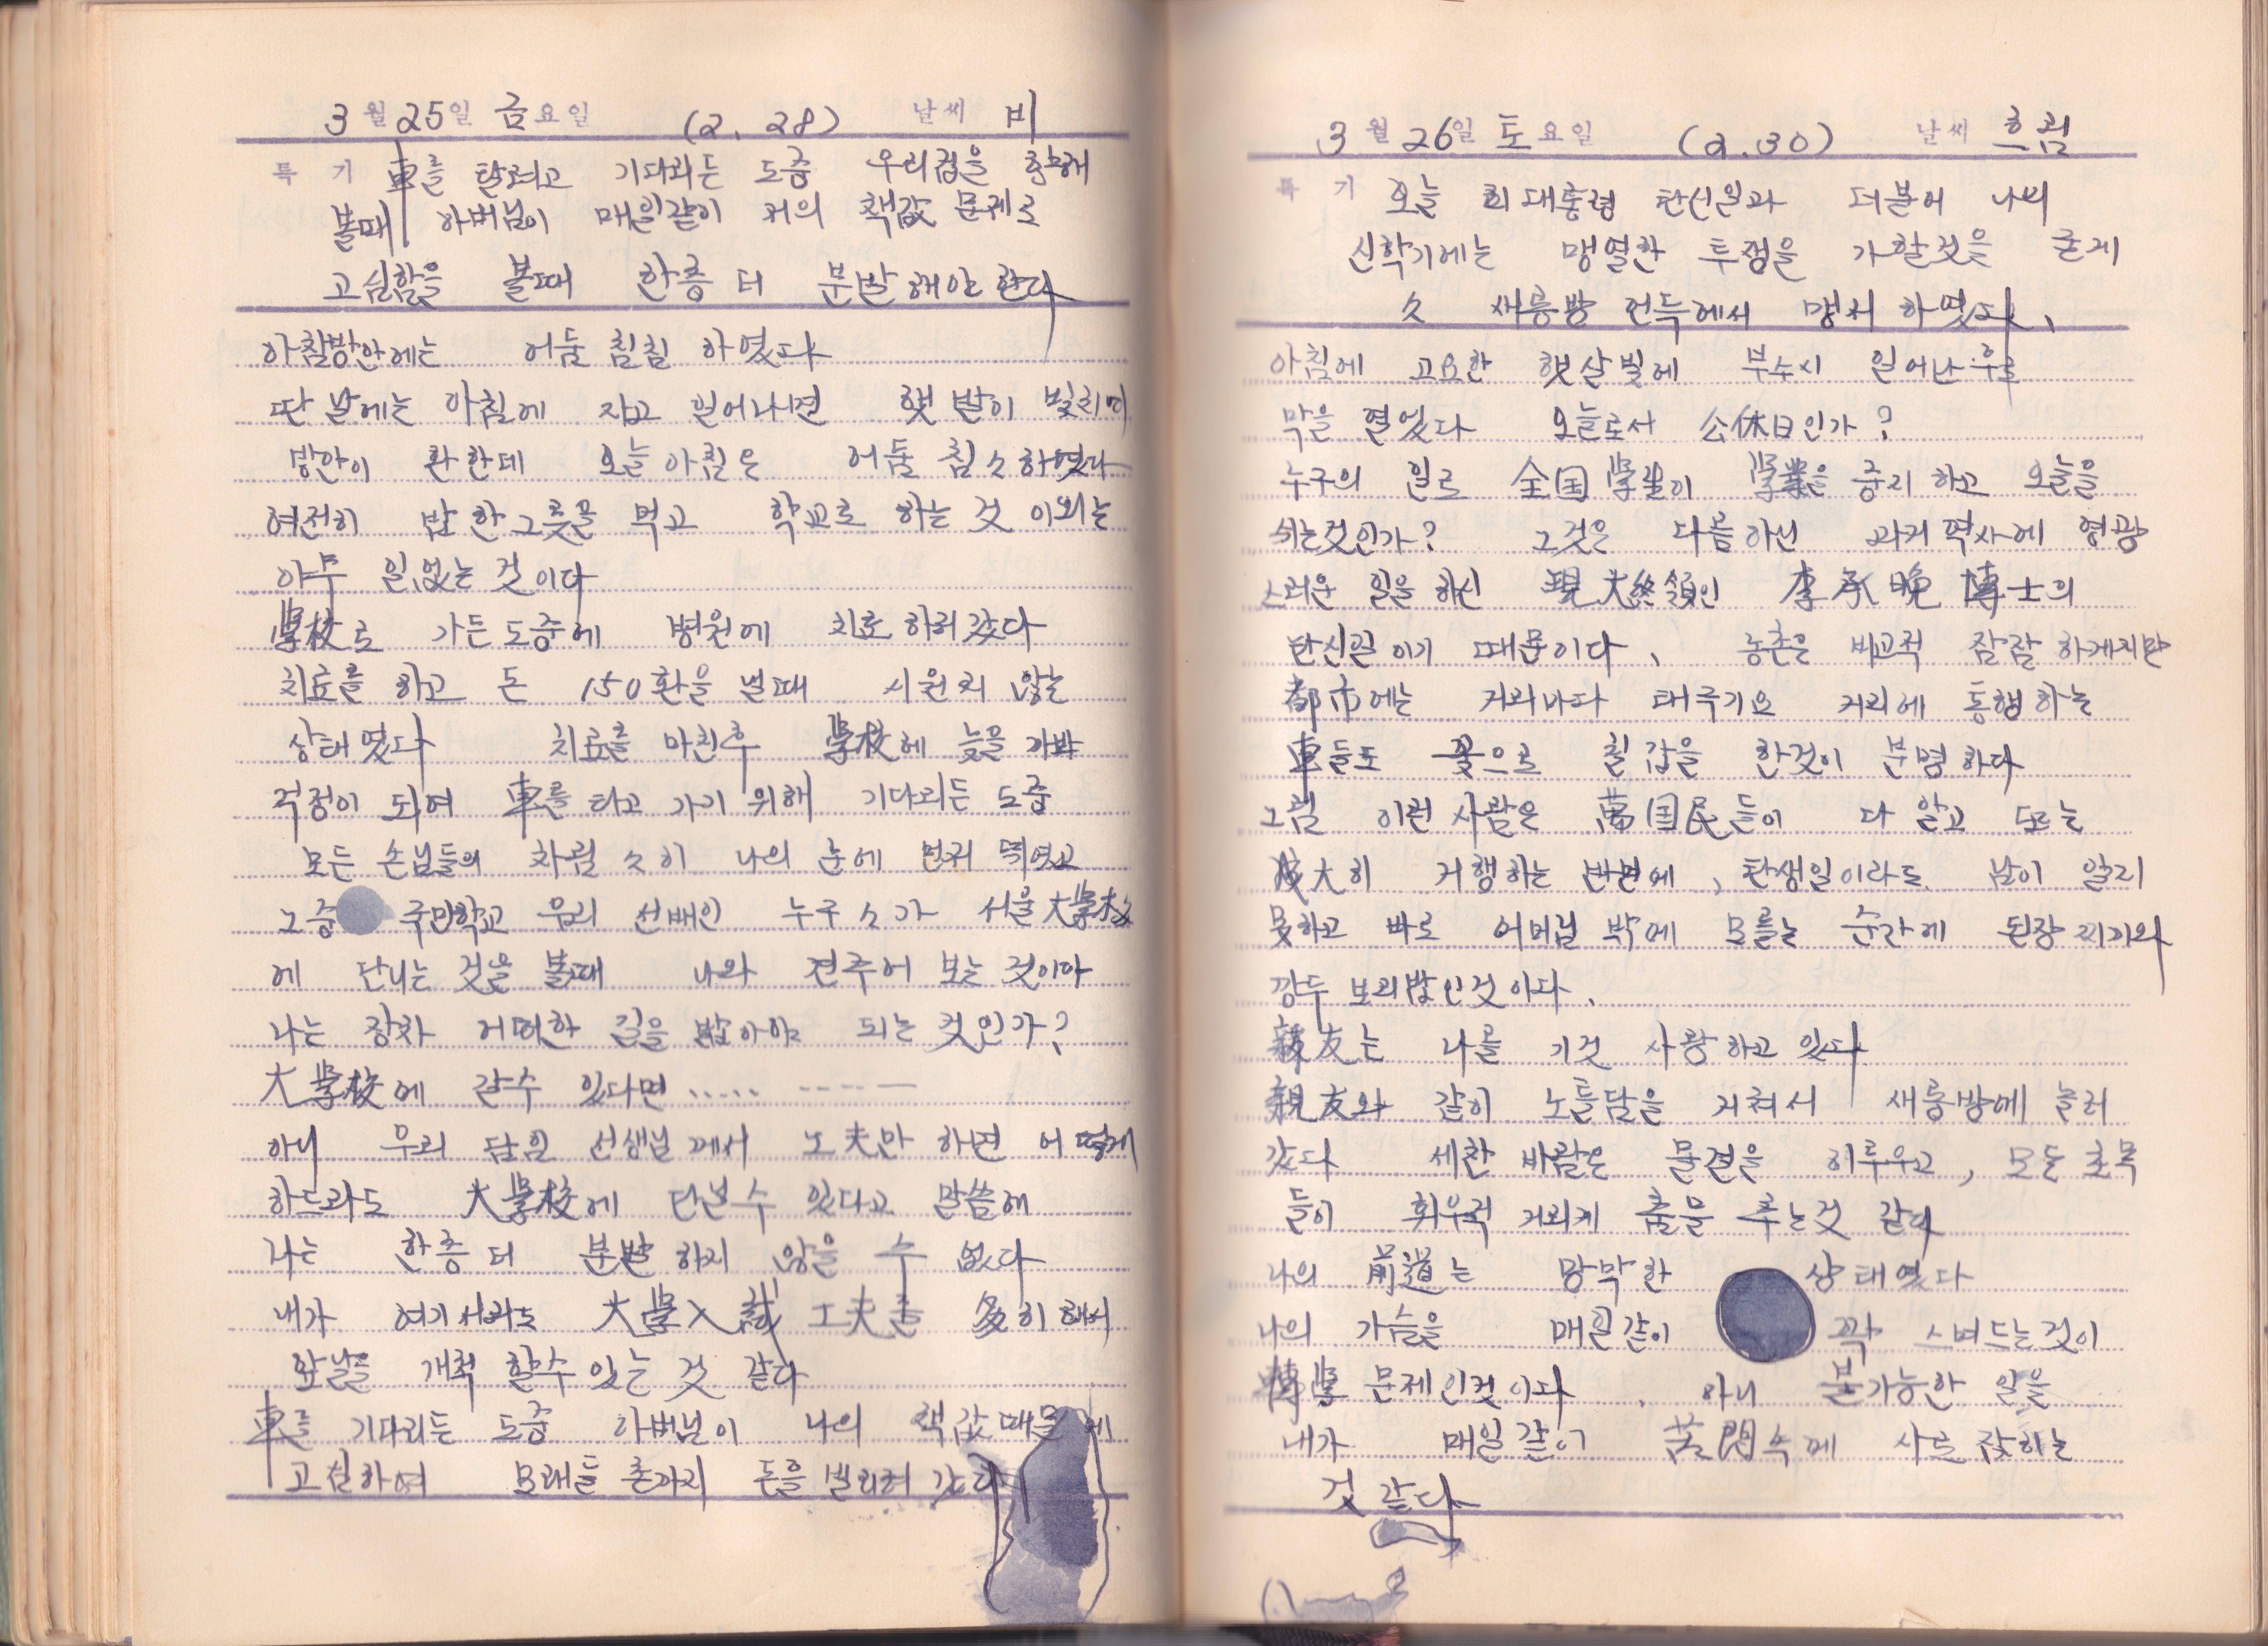 3월 25일 금요일 (2. 28) 날씨 비
특기 車를 탈려고 기다리든 도중 우리집을 향해
볼때 아버님이 매일같이 저의 책값 문제로
고심함을 볼때 한층 더 분발 해야 한다
아침방안에는 어둠 침침 하였다
딴 날에는 아침에 자고 일어나면 햇발이 빛추어
방안이 환한데 오늘 아침은 어둠 침々하였다
여전히 밥 한그릇을 먹고 학교로 하는 것 이외는
아무 일없는 것이다
學校로 가든 도중에 병원에 치료하러 갔다
치료를 하고 돈 150환을 낼때 시원치 않는
상태였다 치료를 마친후 學校에 늦을 가바
걱정이 되여 車를 타고 가기 위해 기다리든 도중
모든 손님들의 차림 々이 나의 눈에 먼저 띄였고
그중 국민학교 우리 선배인 누구々가 서울大學校
에 단니는 것을 볼때 나와 견주어 보는 것이다
나는 장차 어떠한 길을 밟아야 되는 것인가?
大學校에 갈수 있다면 ..... ----—
아니 우리 담임 선생님께서 工夫만 하면 어떻게
하드라도 大學校에 단닐수 있다고 말씀해
나는 한층 더 분발 하지 않을 수 없다
내가 여기서라도 大學入試 工夫를 多히 해서
앞날을 개척 할수 있는 것 같다
車를 기다리든 도중 아버님이 나의 책값때문에
고심하여 모래들 촌까지 돈을 빌리려 갔다
3월 26일 토요일 (2.30) 날씨 흐림
특기 오늘 리대통령 탄신일과 더불어 나의
신학기에는 맹열한 투쟁을 가할것을 굳게
々 새룽방 언득에서 맹서 하였다.
아침에 고요한 햇살빛에 부수시 일어난 후로
막을 열었다 오늘로서 公休日인가?
누구의 일로 全国學生이 學業을 중지 하고 오늘을
쉬는것인가? 그것은 다름아닌 과거 력사에 영광
스러운 일을 하신 現大統領인 李承晩 博士의
탄신일 이기 때문이다. 농촌은 비교적 잠잠 하게지만
都市에는 거리마다 태극기요 거리에 통행하는
車들도 꽃으로 칠갑을 한것이 분명하다
그럼 이런 사람은 萬国民들이 다 알고 또는
成大히 거행하는 반면에, 탄생일이라도 남이 알리
못하고 바로 어머님 밖에 모를는 순간에 된장 찌기와
깡두 보리밥인것이다.
親友는 나를 기것 사랑하고 있다
親友와 같이 노틀담을 거쳐서 새룽방에 놀러
갔다 세찬 바람은 물결을 이루우고, 모든 초목
들이 희우적 거리게 춤을 추는것 같다
나의 前道는 망막한 상태였다
나의 가슴을 매일같이 꽉 스며드는것이
轉學 문제인것이다. 아니 불가능한 일을
내가 매일같이 苦悶속에 사로잡히는
것 같다